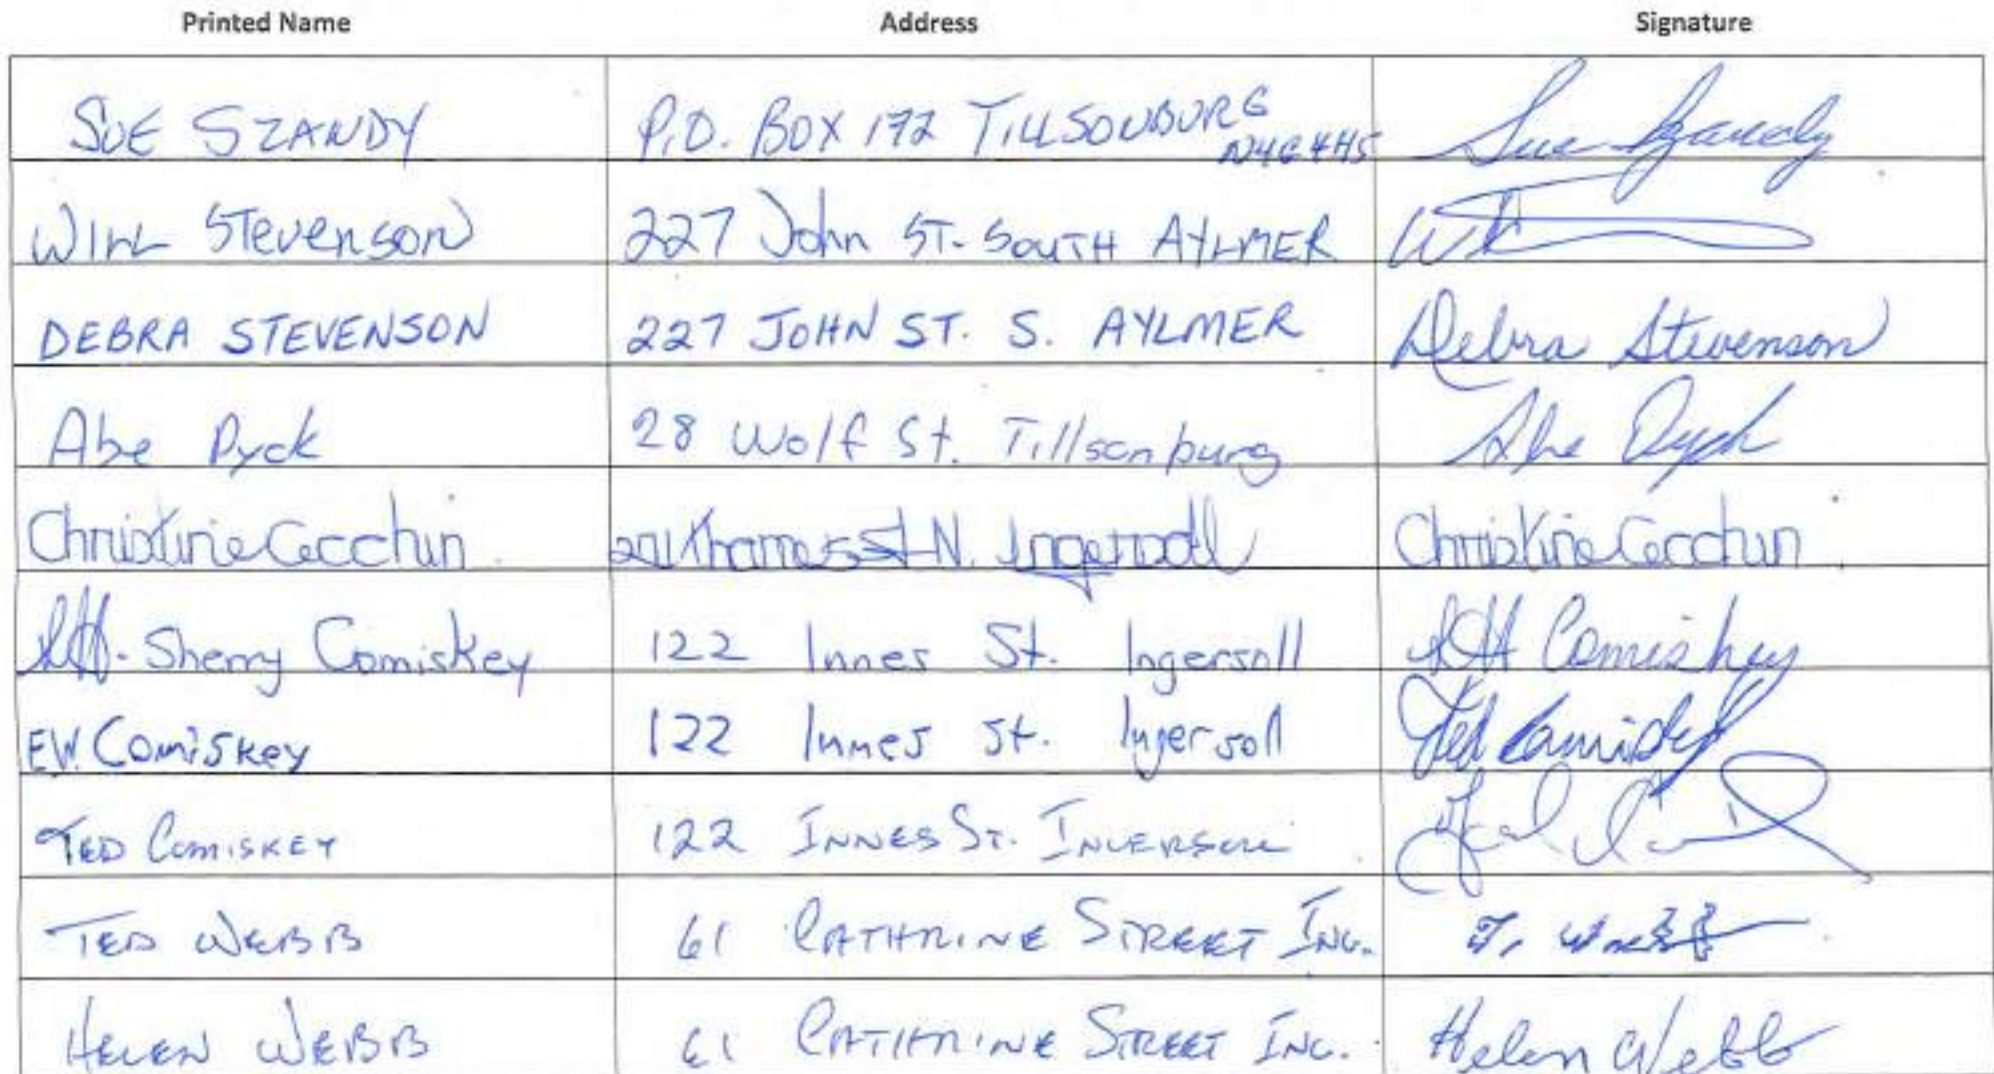 Printed Name Address Signature
SUE SZANDY P.O. BOX 172 TILLSONBURG N4G4H5 Sue Szandy
WILL Stevenson 227 John ST. SOUTH AYLMER
DEBRA STEVENSON 227 JOHN ST. S. AYLMER Debra Stevenson
Abe Dyck 28 Wolf St. Tillsonburg Abe Dyck
Christine Cecchin Thames St N. Ingersoll Christine Cecchin
Sherry Comiskey 122 Innes St. Ingersoll Comiskey
EW. Comiskey 122 Innes St. Ingersoll Ted Comiskey
TED COMISKEY 122 INNES ST. INGERSOLL
TED WEBB 61 CATHRINE STREET ING. T. Webb
HELEN WEBB 61 CATHRINE STREET ING. Helen Webb